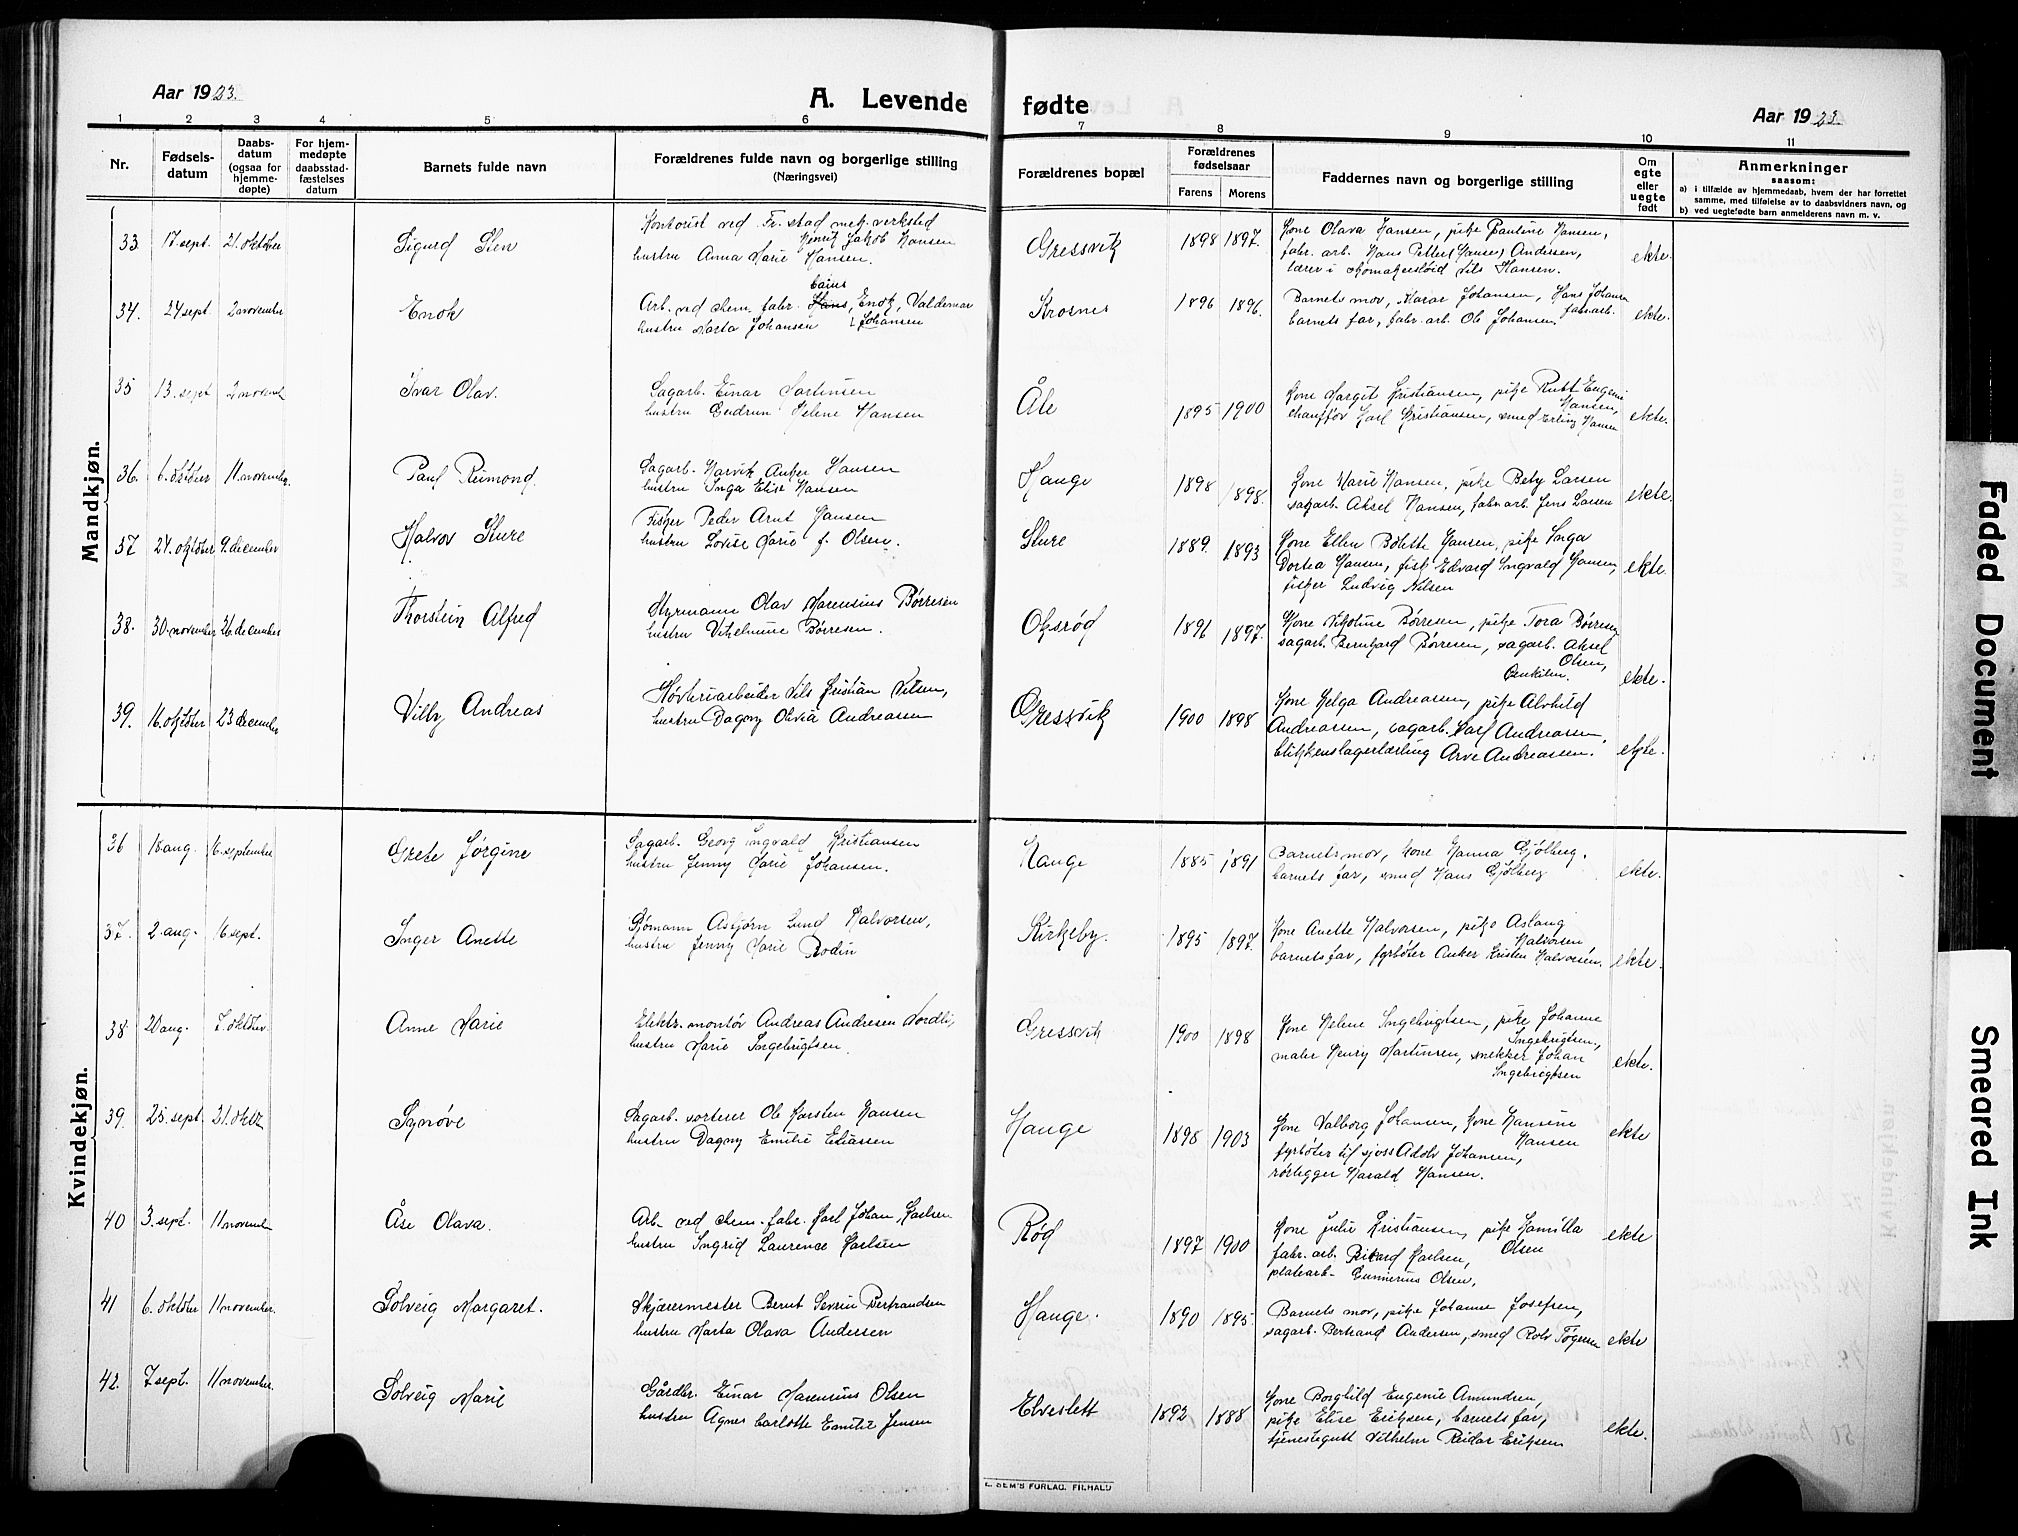 Aar 1923.
A. Levende fødte
Aar 1923.
1 2 3 4 5 6 7 8 9 10 11
Nr.
Fødsels-
datum
Daabs-
datum
(ogsaa for
hjemme-
døpte)
For hjem-
medøpte
daabsstad-
fæstelses
datum
Barnets fulde navn
Forældrenes fulde navn og borgerlige stilling
(Næringsvei)
Forældrenes bopæl
Forældrenes
fødselsaar
Farens Morens
Faddernes navn og borgerlige stilling
Om
egte
eller
uegte
født
Anmerkninger
saasom:
a) i tilfælde av hjemmedaab, hvem der har forrettet
samme, med tilføielse av to daabsvidners navn, og
b) ved uegtefødte barn anmelderens navn m. v.
Mandkjøn.
33. 17. sept. 21. oktober Sigurd Sten
Kontorist ved Fr.stad mek. verksted
Henrik Jakob Hansen
hustru Anna Marie Hansen.
Gressvik 1898 1897.
Kone Olava Hansen, pike Pauline Hansen,
fabr. arb. Hans Petter (Hansen) Andersen,
lærer i Nils Hansen.
ekte.
34. 24 sept. 2 november Enok
Arb. ved chem. fabr. Hans, Enok, Valdemar
hustru Marta Johansen Johansen
Krosnes 1896 1896.
Barnets mor, Johansen, Hans Johansen
fabr. arb.
barnets far, fabr. arb. Ole Johansen
ekte.
35 13. sept 2 novemb. Ivar Olav.
Sagarb. Einar Martinsen
hustru Gudrun Helene Hansen
Åle 1895 1900
Kone Margit Kristiansen, pike Rutt Eugenie
Hansen,
chauffør Karl Kristiansen, smed Erling Hansen
ekte.
36. 6. oktober 11 november. Paul Reimond.
Sagarb. Narvik Anker Hansen
hustru Inga Elise Hansen
Hauge 1898 1898.
Kone Marie Hansen, pike Bety Larsen
sagarb. Aksel Hansen, fabr. arb. Jens Larsen
ekte.
37 24. oktober 9. december Halvor Sture
Fisker Peder Arnt Hansen
hustru Lovise Marie f. Olsen.
Slure 1889. 1893
Kone Ellen Bolette Hansen, pike Inga
Dortea Hansen, fisk. Edvard Ingvald Hansen,
fisker Ludvig Nilsen
ekte.
38. 30. november 26 december Thorstein Alfred
Styrmann Olav Marensius Børresen
hustru Vilhelmine Børresen.
Oksrød 1896 1897.
Kone Nikoline Børresen, pike Tora Børresen
sagarb. Bernhard Børresen, sagarb. Aksel
Olsen,
Enkilen.
ekte.
39. 16. oktober 23 december Villy Andreas
Høvleriarbeider Nils Kristian Nilsen,
hustru Dagny Olivia Andreasen
Gressvik 1900 1898
Kone Helga Andreassen, pike Alvhild
Andreassen, sagarb. Karl Andreassen,
blikkenslagerlærling Arve Andreassen.
ekte.
Kvindekjøn.
36 18 aug. 16. september Grete Jørgine
Sagarb. Georg Ingvald Kristiansen
hustru Jenny Marie Johansen.
Hauge 1885 1891
Barnets mor, kone Hanna Gjølberg,
barnets far, smed Hans Gjølberg
ekte.
37. 2. aug. 16 sept. Inger Anette
Sjømann Asbjørn Lund Halvorsen,
hustru Jenny Marie Rodin
Kirkeby. 1895 1897.
Kone Anette Halvorsen, pike Aslaug
Halvorsen,
barnets far, fyrbøter Anker Kristen Halvorsen.
ekte.
38 20 aug. 7. oktober. Anne Marie
Elektr. montør Andreas Andresen Nordli,
hustru Marie Ingebrigtsen.
Gressvik 1900 1898
Kone Helene Ingebrigtsen, pike Johanne
Ingebrigtsen,
maler Henry Martinsen, snekker Johan
Ingebrigtsen
ekte.
39. 25. sept. 21. oktbr Synøve
Sagarb. sorterer Ole Karsten Hansen
hustru Dagny Emilie Eliassen
Hauge 1898 1903
Kone Valborg Johansen, kone Hansine
Hansen
fyrbøter til sjøss Adolv Johansen,
rørlegger Harald Hansen.
ekte
40 3. sept. 11 novemb. Åse Olava.
Arb. ved chem. fabr. Karl Johan Karlsen
hustru Ingrid Laurence Karlsen
Rød 1897 1900
Kone Julie Kristiansen, pike Kamilla
Olsen
fabr. arb. Rikard Karlsen,
platearb. Gunnerius Olsen,
ekte
41 6. oktober 11 november. Solveig Margaret.
Skjæremester Bernt Severin Bertrandsen
hustru Marta Olava Andersen
Hauge. 1890 1895.
Barnets mor, pike Johanne Josefsen,
sagarb. Bertrand Andersen, smed Rolv
ekte
42. 7 sept. 11 november. Solveig Marie
Gårdbr. Einar Marenius Olsen
hustru Agnes Carlotte Emilie Jensen
Elveslett 1892 1888
Kone Borghild Eugenie Amundsen,
pike Elise Eriksen, barnets far,
tjenestegutt Vilhelm Reidar Eriksen
ekte.
SEM'S FORLAG, FR.HALD
Faded Document
Smeared Ink